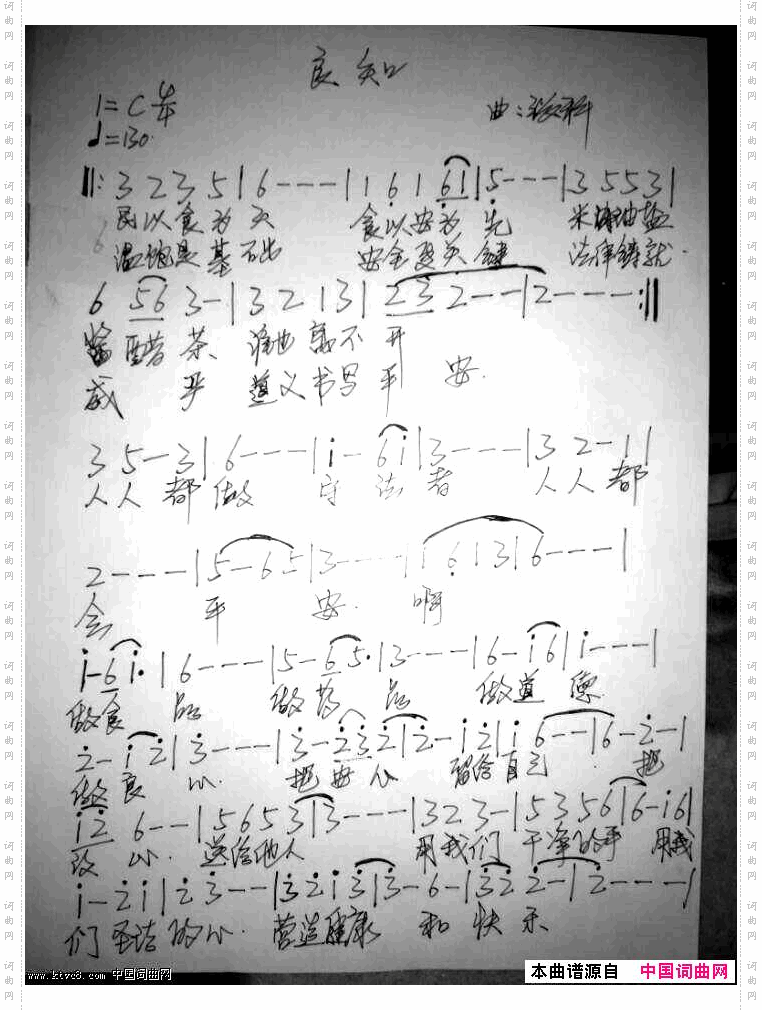 良知
1=C 4/4
♩=130
曲:
‖: 3 2 3 5 | 6 - - - | 1 6̣ 1 6̣1 | 5̣ - - - | 3 5 5 3 |
民以食为天 食以安为先 米 油盐
温饱是基础 安全是关键 法律铸就
6 56 3 - | 3 2 1 3 | 2 3 2 - - | 2 - - - :‖
酱醋茶 谁也离不开
威严 道义书写平安
3 5 - 3 | 6 - - - | i - 6 i | 3 - - - | 3 2 - 1 |
人人都做守法者 人人都
2 - - - | 5 - 6 5 | 3 - - - | 1 6̣ 1 3 | 6 - - - |
会平安 啊
i - 6 i· | 6 - - - | 5 - 6 5· | 3 - - - | 6 - i 6 | i - - - |
做食品 做药品 做道德
2 - i 2 | 3 - - - | 3 - 2 3 2 | 2 - i 2 | i 6 - - | 6 - 2 - |
做良心 把安心 留给自己 把
i 2 6 - - | 5 6 5 3 | 3 - - - | 3 2 3 - | 5 3 5 6 | 6 - i 6 |
放心 送给他人 用我们 干净的手 用我
i - 2 i | 2 3 - - | 3 2 i 3 | 3 - 6 - | 3 2 2 - | 2 - - - |
们圣洁的心 营造健康和快乐
www.ktvc8.com 中国词曲网
本曲谱源自 中国词曲网
词曲网